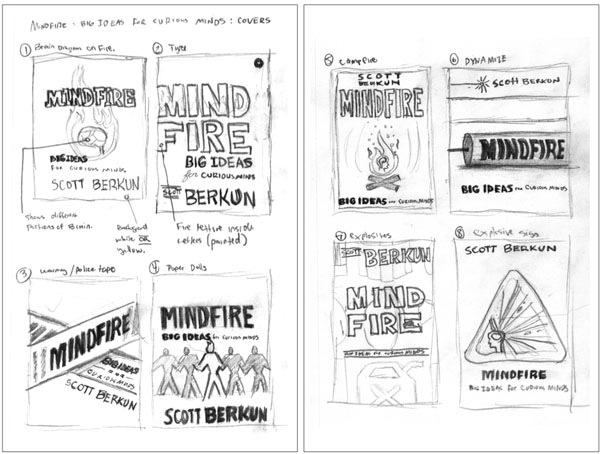 MINDFIRE : BIG IDEAS FOR CURIOUS MINDS : COVERS
① Brain Diagram on Fire.
MINDFIRE
BIG IDEAS
FOR CURIOUS MINDS
SCOTT BERKUN
Shows different
portions of Brain.
Background
white OR
yellow.
② Type
MIND
FIRE
BIG IDEAS
for CURIOUS MINDS
BERKUN
Fire texture inside
letters (painted)
③ Warning / Police tape
MINDFIRE
BIG IDEAS
CURIOUS MINDS
SCOTT BERKUN
④ Paper Dolls
MINDFIRE
BIG IDEAS for CURIOUS MINDS
SCOTT BERKUN
⑤ Campfire
SCOTT
BERKUN
MINDFIRE
BIG IDEAS FOR CURIOUS MINDS
⑥ DYNAMITE
SCOTT BERKUN
MINDFIRE
BIG IDEAS FOR CURIOUS MINDS
⑦ Explosives
SCOTT BERKUN
MIND
FIRE
BIG IDEAS FOR CURIOUS MINDS
⑧ Explosive sign
SCOTT BERKUN
MINDFIRE
BIG IDEAS for CURIOUS MINDS